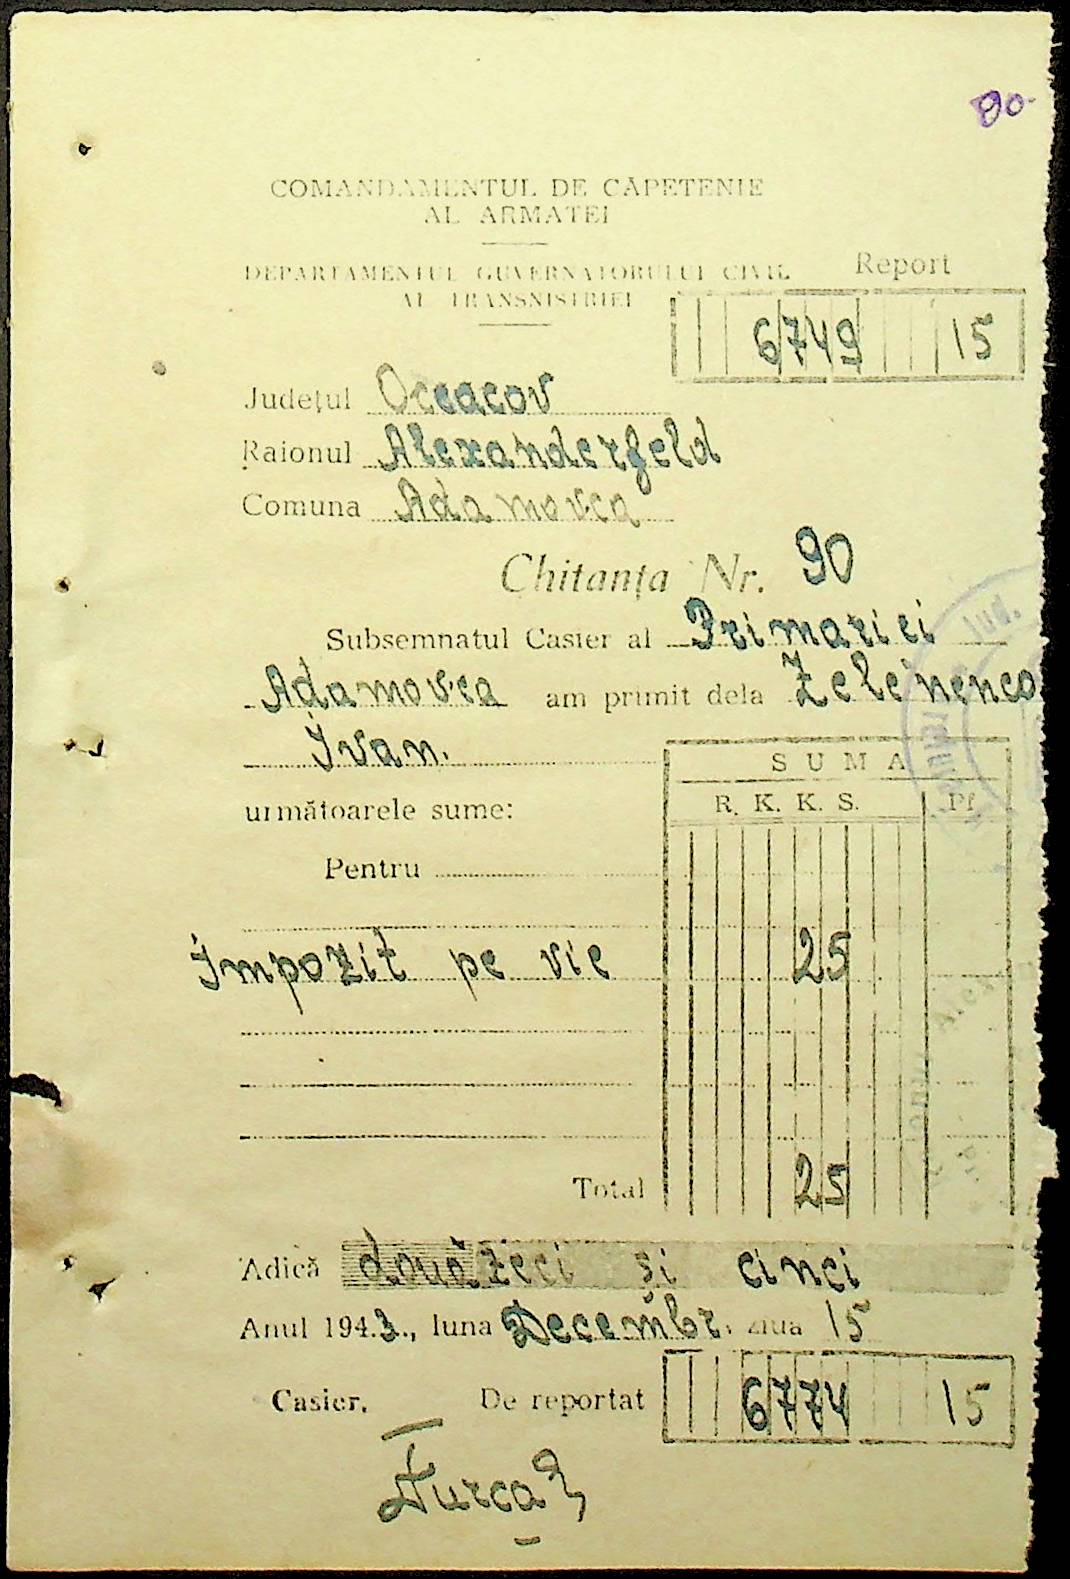 90
COMANDAMENTUL DE CĂPETENIE
AL ARMATEI
DEPARTAMENTUL GUVERNATORULUI CIVIL
AL TRANSNISTRIEI
Report
6749 15
Județul Oceacov
Raionul Alexanderfeld
Comuna Adamovca
Chitanța Nr. 90
Subsemnatul Casier al Primariei
Adamovca am primit dela Zeleinenco
Ivan.
SUMA
R. K. K. S. Pf
următoarele sume:
Pentru
Impozit pe vie 25
Total 25
Adică douăzeci și cinci
Anul 1943., luna Decembr. ziua 15
Casier, De reportat 6774 15
Jud.